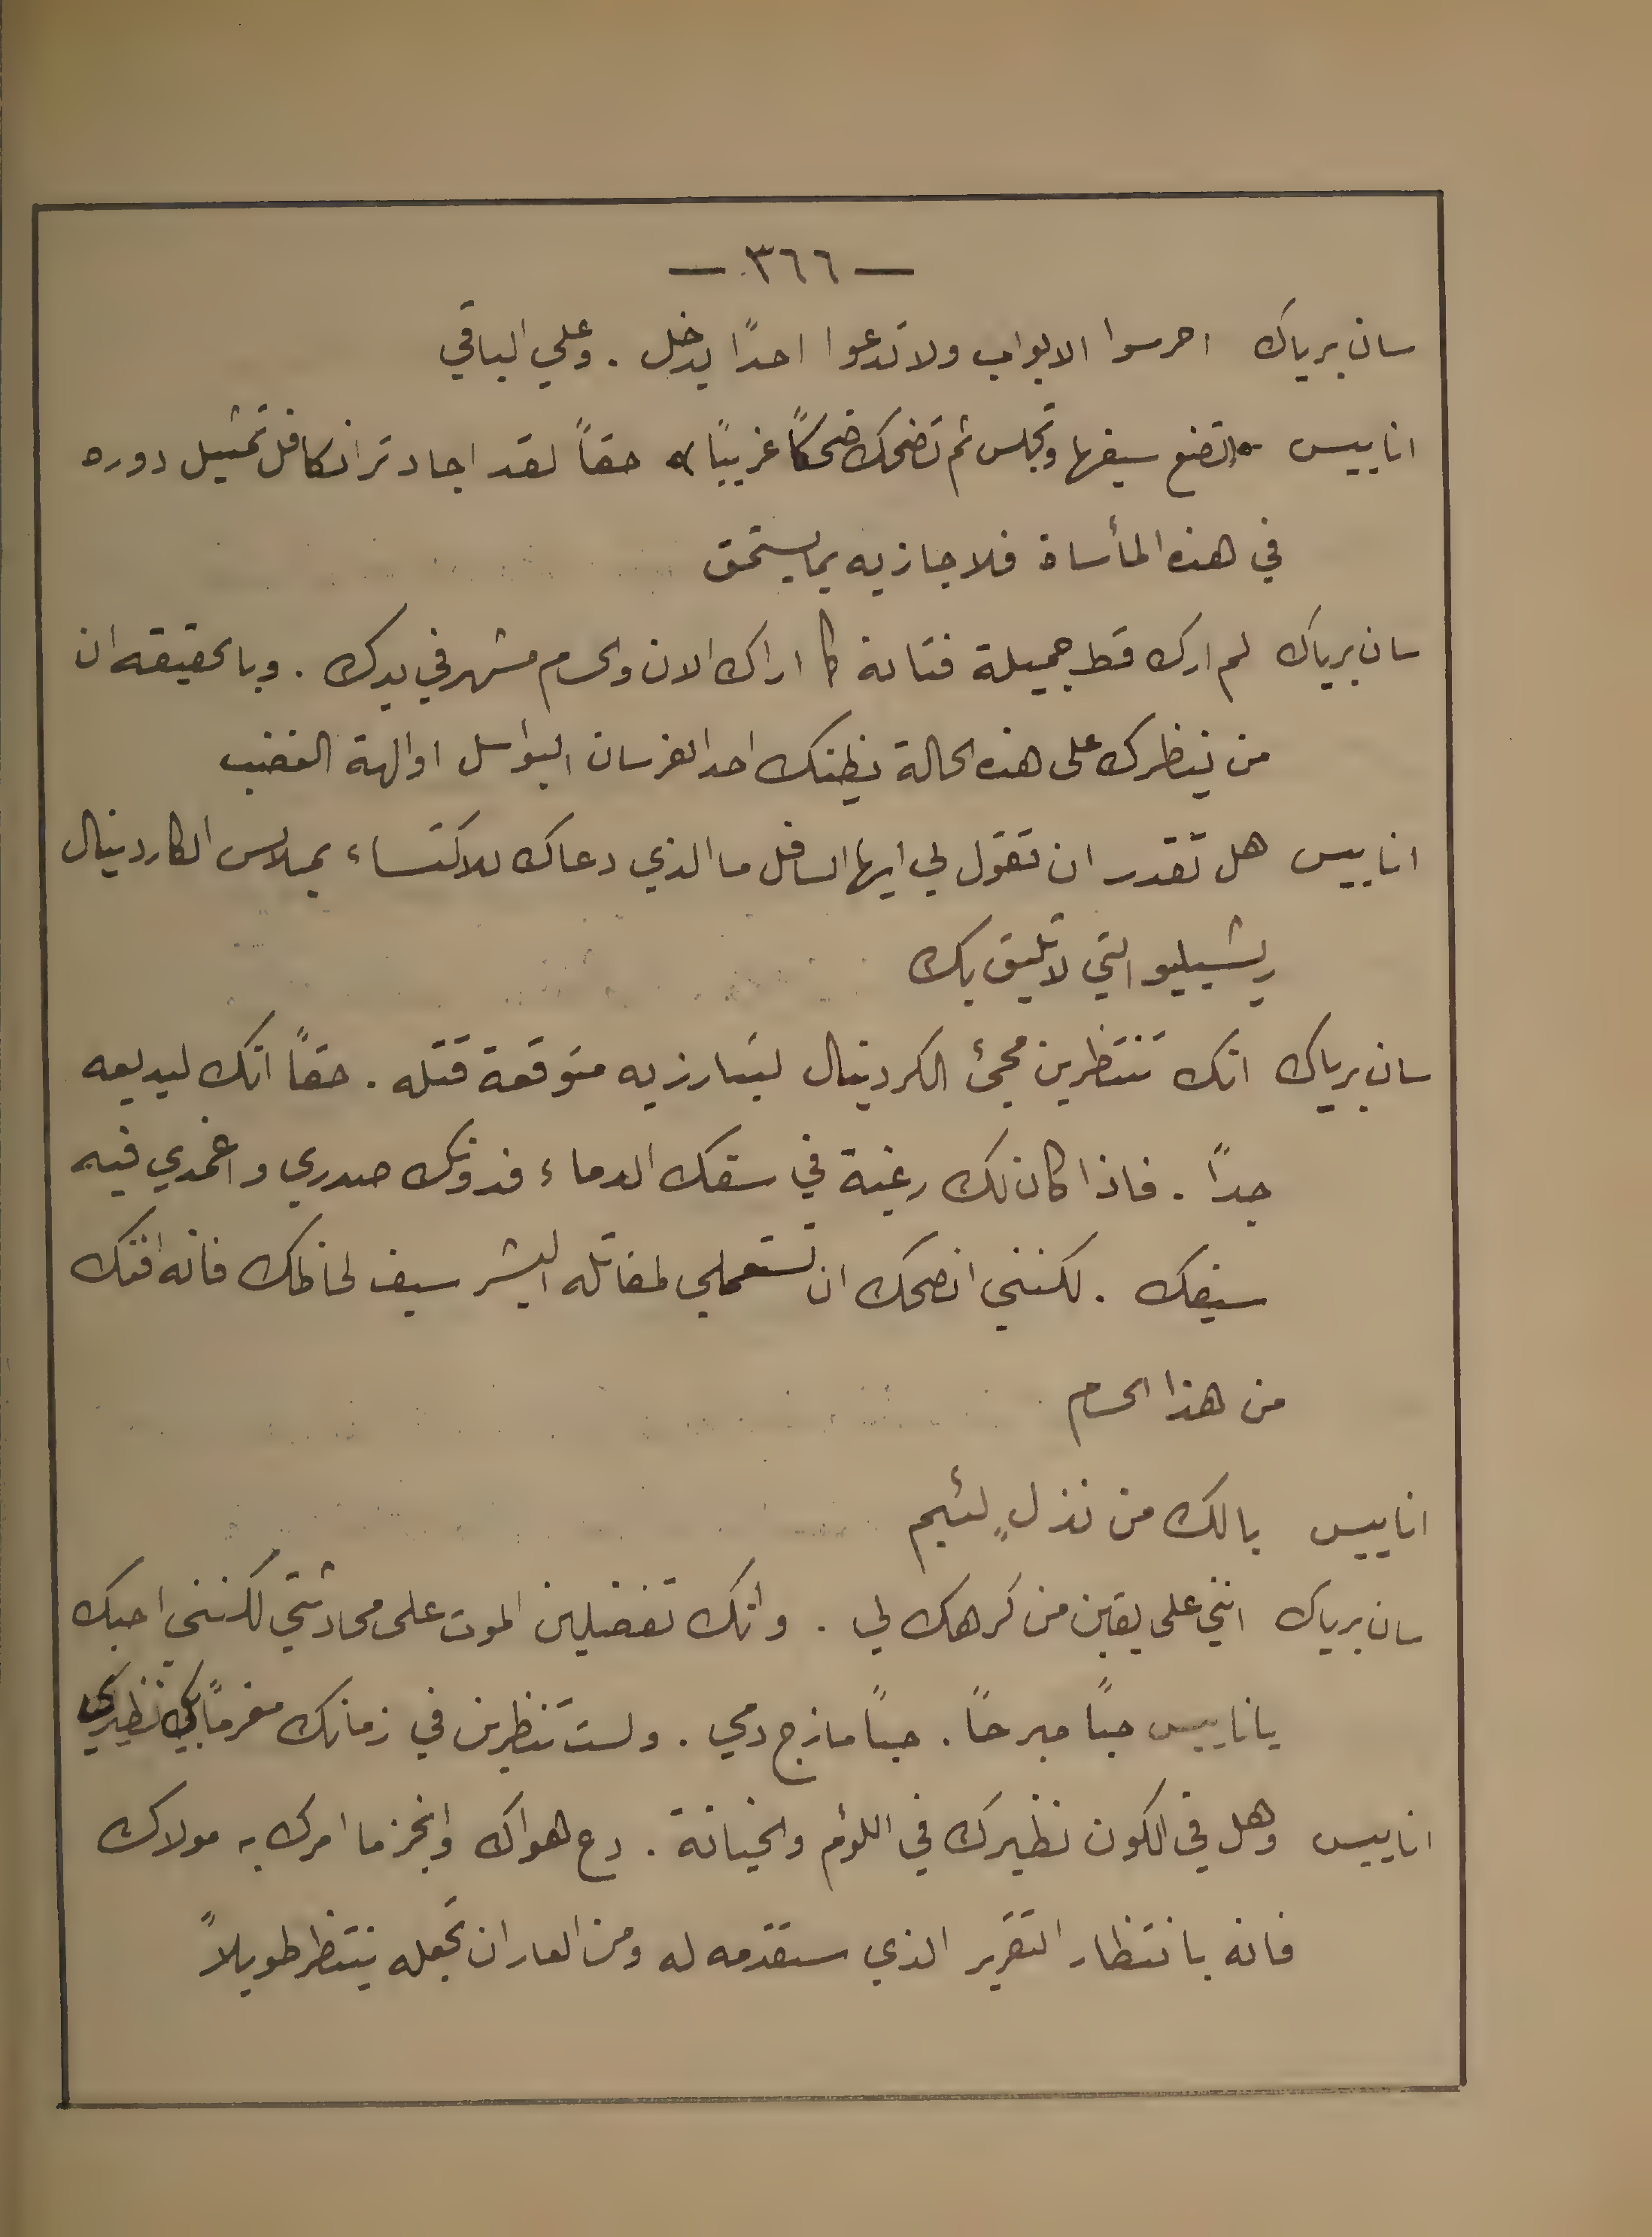 — ٣٦٦ —
سان برياك احرسوا الابواب ولا تدعوا احدًا يدخل . وعلي الباقي
اناييس «تضع سيفها وتجلس ثم تضحك ضحكًا غريبًا» حقاً لقد اجاد ترانكافل تمثيل دوره
في هذه المأساة فلاجازيه بما يستحق
سان برياك لم ارك قط جميلة فتانة كما اراك الان والحسام مشهر في يدك . وبالحقيقه ان
من ينظرك على هذه الحالة يظنك احد الفرسان البواسل او الهة الغضب
اناييس هل تقدر ان تقول لي ايها السافل ما الذي دعاك للاكتساء بملابس الكاردينال
ريشيليو التي لا تليق بك
سان برياك انك تنتظرين مجئ الكردينال لتبارزيه متوقعة قتله . حقاً انك لبديعه
جداً . فاذا كان لك رغبة في سفك الدماء فدونك صدري واغمدي فيه
سيفك . لكنني انصحك ان تستعملي لمقاتله البشر سيف لحاظك فانه افتك
من هذا الحسام
اناييس يا لك من نذلٍ لئيم
سان برياك انني على يقين من كرهك لي . وانك تفضلين الموت على محادثتي لكنني احبك
يا اناييس حباً مبرحاً . حباً مازج دمي . ولست تنظرين في زمانك مغرماً بكي نظيري
اناييس وهل في الكون نظيرك في اللؤم والخيانة . دع هواك وانجز ما امرك به مولاك
فانه بانتظار التقرير الذي ستقدمه له ومن العار ان تجعله ينتظر طويلاً